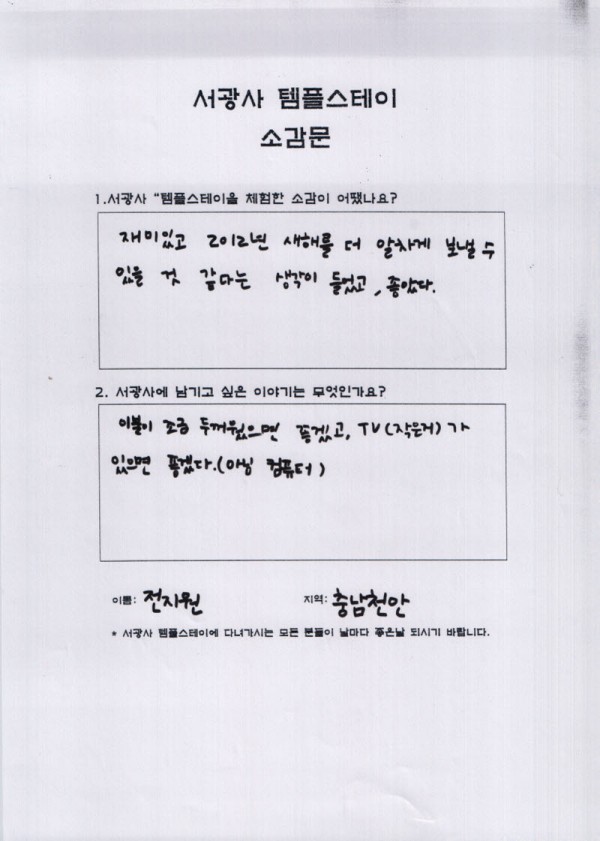 서광사 템플스테이
소감문
1.서광사 "템플스테이을 체험한 소감이 어땠나요?
재미있고 2012년 새해를 더 알차게 보낼 수
있을 것 같다는 생각이 들었고, 좋았다.
2. 서광사에 남기고 싶은 이야기는 무엇인가요?
이불이 조금 두꺼웠으면 좋겠고, TV(작은거)가
있으면 좋겠다.(아님 컴퓨터)
이름: 전지원 지역: 충남천안
* 서광사 템플스테이에 다녀가시는 모든 분들이 날마다 좋은날 되시기 바랍니다.